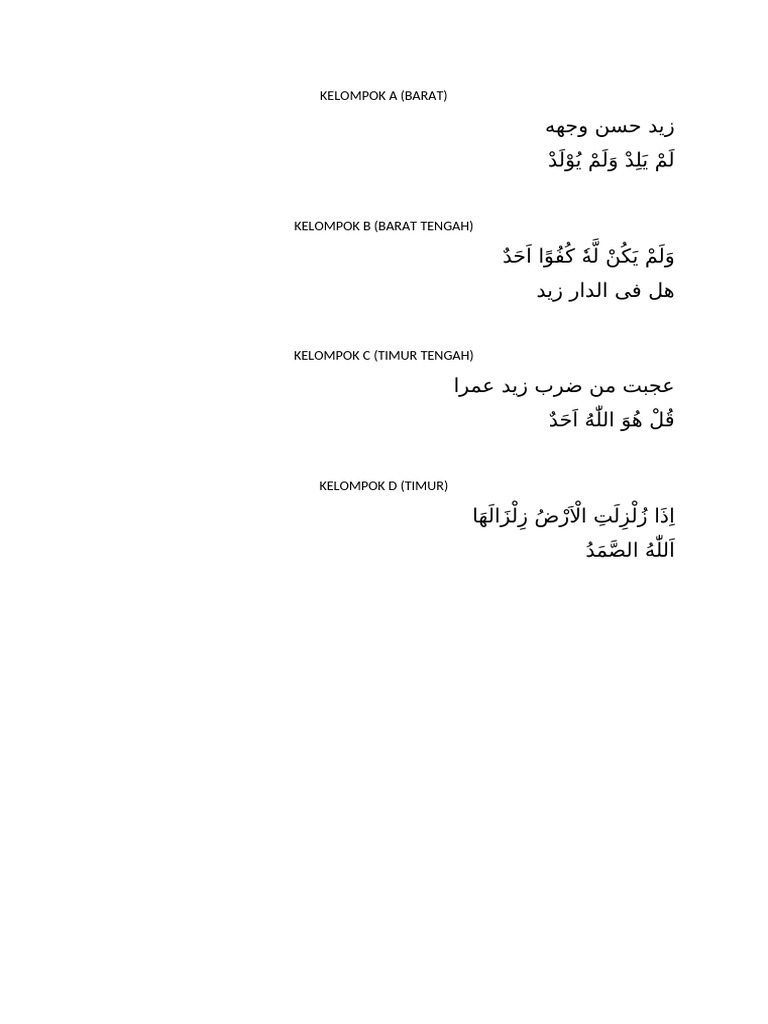 KELOMPOK A (BARAT)
زيد حسن وجهه
لَمْ يَلِدْ وَلَمْ يُوْلَدْ
KELOMPOK B (BARAT TENGAH)
وَلَمْ يَكُنْ لَّهٗ كُفُوًا اَحَدٌ
هل فى الدار زيد
KELOMPOK C (TIMUR TENGAH)
عجبت من ضرب زيد عمرا
قُلْ هُوَ اللّٰهُ اَحَدٌ
KELOMPOK D (TIMUR)
اِذَا زُلْزِلَتِ الْاَرْضُ زِلْزَالَهَا
اَللّٰهُ الصَّمَدُ